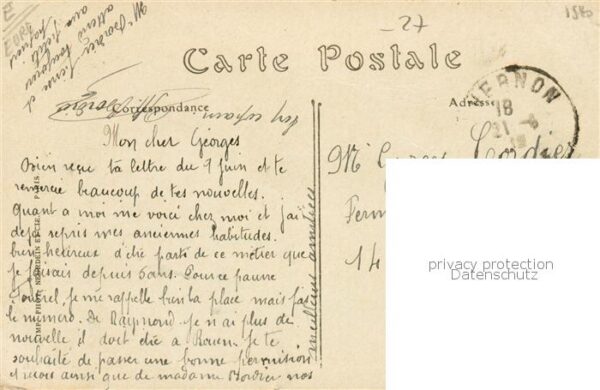 -27
1580
EURE
Carte Postale
Correspondance
Adresse
VERNON
18
21-8
19
Mon cher Georges
Bien reçu ta lettre du 9 Juin et te
remercie beaucoup de tes nouvelles.
Quant a moi me voici chez moi et j'ai
deja repris mes anciennes habitudes.
bien heureux d'être parti de ce métier que
je faisais depuis 6 ans. Pour ce pauvre
je me rappelle bien la place mais pas
le numéro. De Raymond je n'ai plus de
nouvelle il doit être a Rouen. Je te
souhaite de passer une bonne permission
et reçois ainsi que de madame Bordier nos
meilleurs amitiées
Mr
Cordier
Ferm
14
IMP. PHOT. NEURDEIN ET CIE. PARIS
privacy protection
Datenschutz